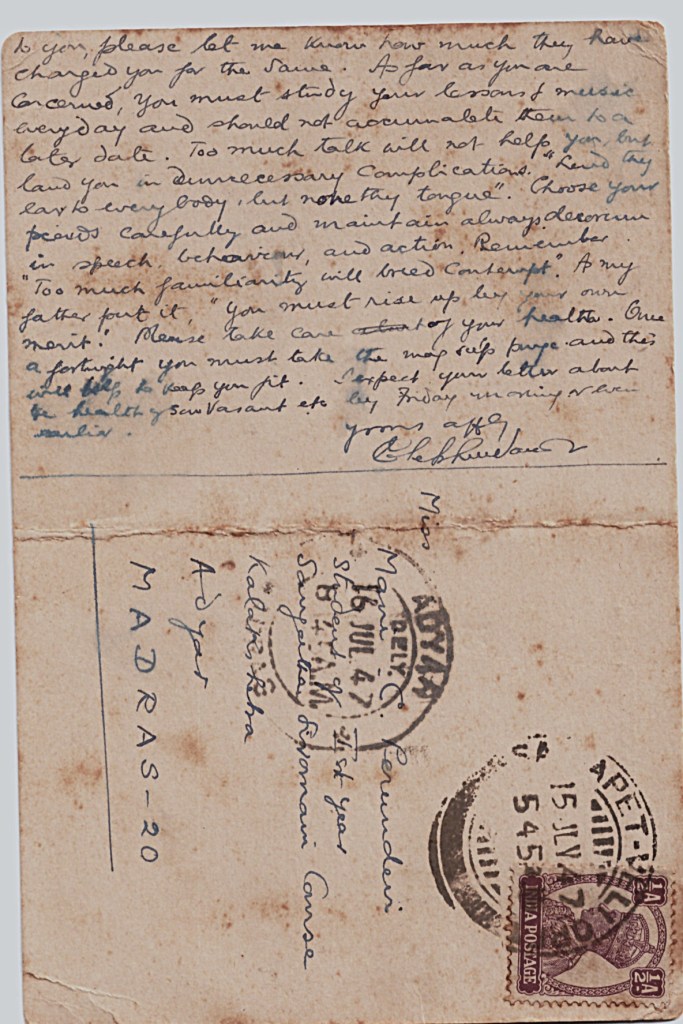 to you, please let me know how much they have
charged you for the same. As far as you are
concerned, you must study your lessons of music
everyday and should not accumulate them to a
later date. Too much talk will not help you, but
land you in unnecessary complications. "Lend thy
ear to everybody, but none thy tongue". Choose your
carefully and maintain always decorum
in speech, behaviour, and action. Remember
"Too much familiarity will breed contempt". As my
father put it, "You must rise up by your own
merit." Please take care of your health. Once
a fortnight you must take the mag sulp purge and this
will help to keep you fit. I expect your letter about
the health of by Friday morning or even
earlier.
yours affly
Miss
Mani C. Perundevi
Student of 1st year
Sangeetha Siromani Course
Kalakshetra
Adyar
MADRAS-20
ADYAR
DELY.
16 JUL 47
8 AM
APET-
15 JLY 47
545
½A
½A
INDIA POSTAGE